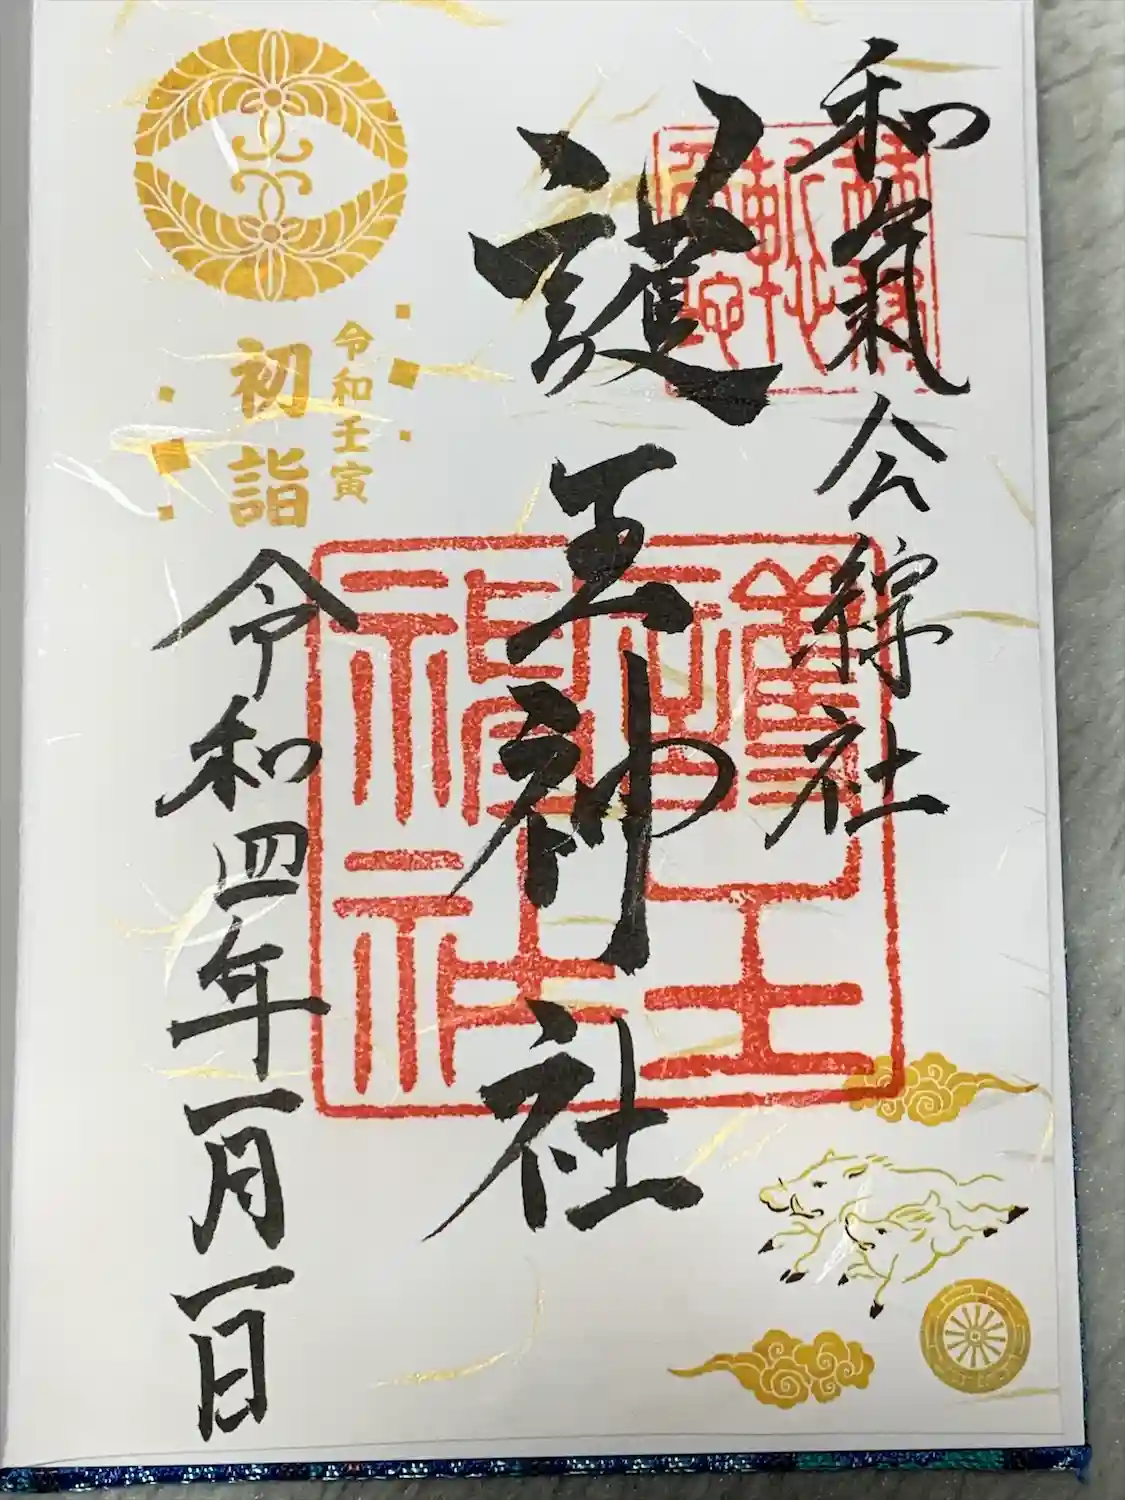 和氣公綜社
護王神社
護王神社
令和壬寅
初詣
令和四年一月一日